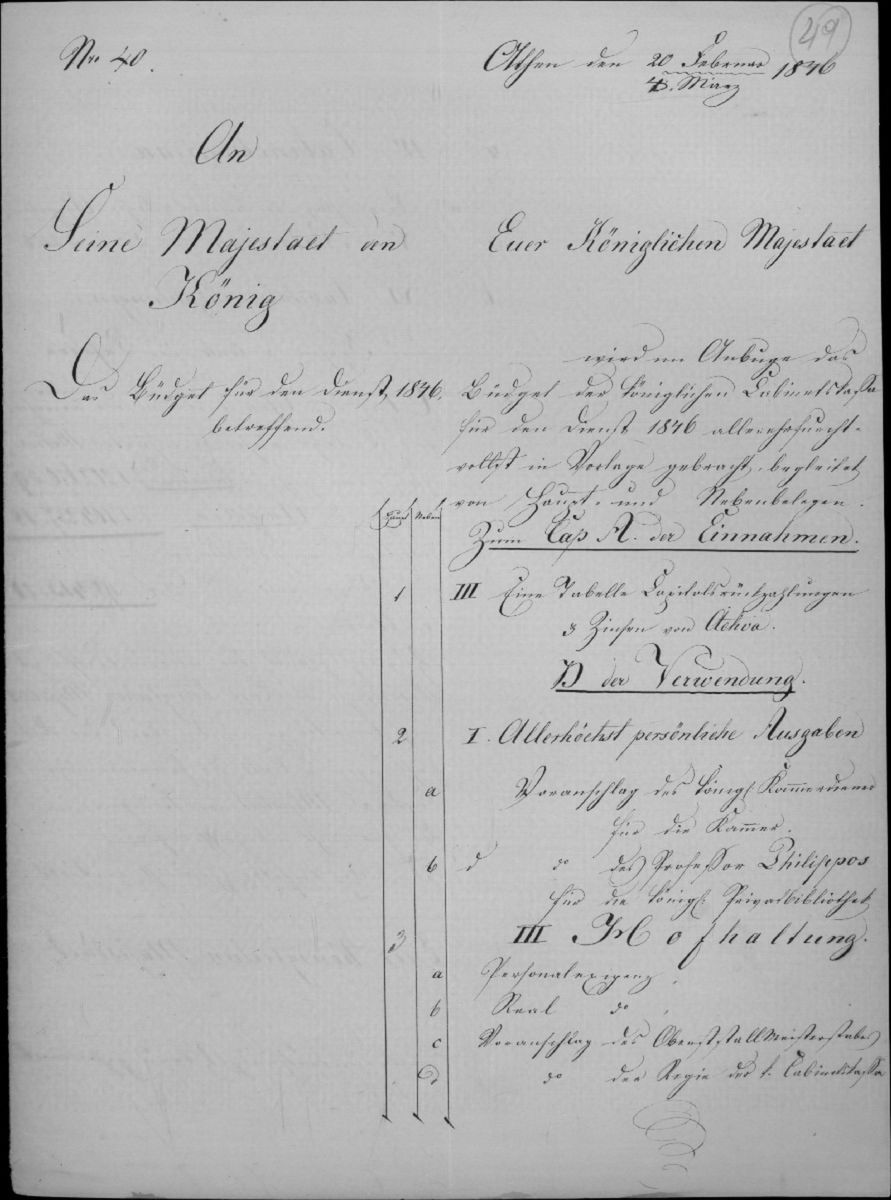 49
Nro 40.
Athen den 20 Februar / 4. März 1846
An
Seine Majestaet den
König
Das Büdget für den Dienst 1846.
betreffend.
Euer Königlichen Majestaet
wird im Anbuge das
Büdget der königlichen Cabinetskassa
für den Dienst 1846 allerehrfurcht-
vollst in Vorlage gebracht, begleitet
von Haupt- und Nebenbelegen.
Haupt Neben
Zum Cap A. der Einnahmen.
1 III Eine Tabelle Capitalsrückzahlungen
& Zinsen von Activa.
B der Verwendung.
2 I. Allerhöchst persönliche Ausgaben
a Voranschlag des königl. Kammerdieners
für die Kammer.
b d do des Professor Philippos
für die königl. Privatbibliothek
3 III Hofhaltung.
a Personalexigenz
b Real do
c Voranschlag des Oberststallmeisterstabes
d do der Regie der k. Cabinetskassa